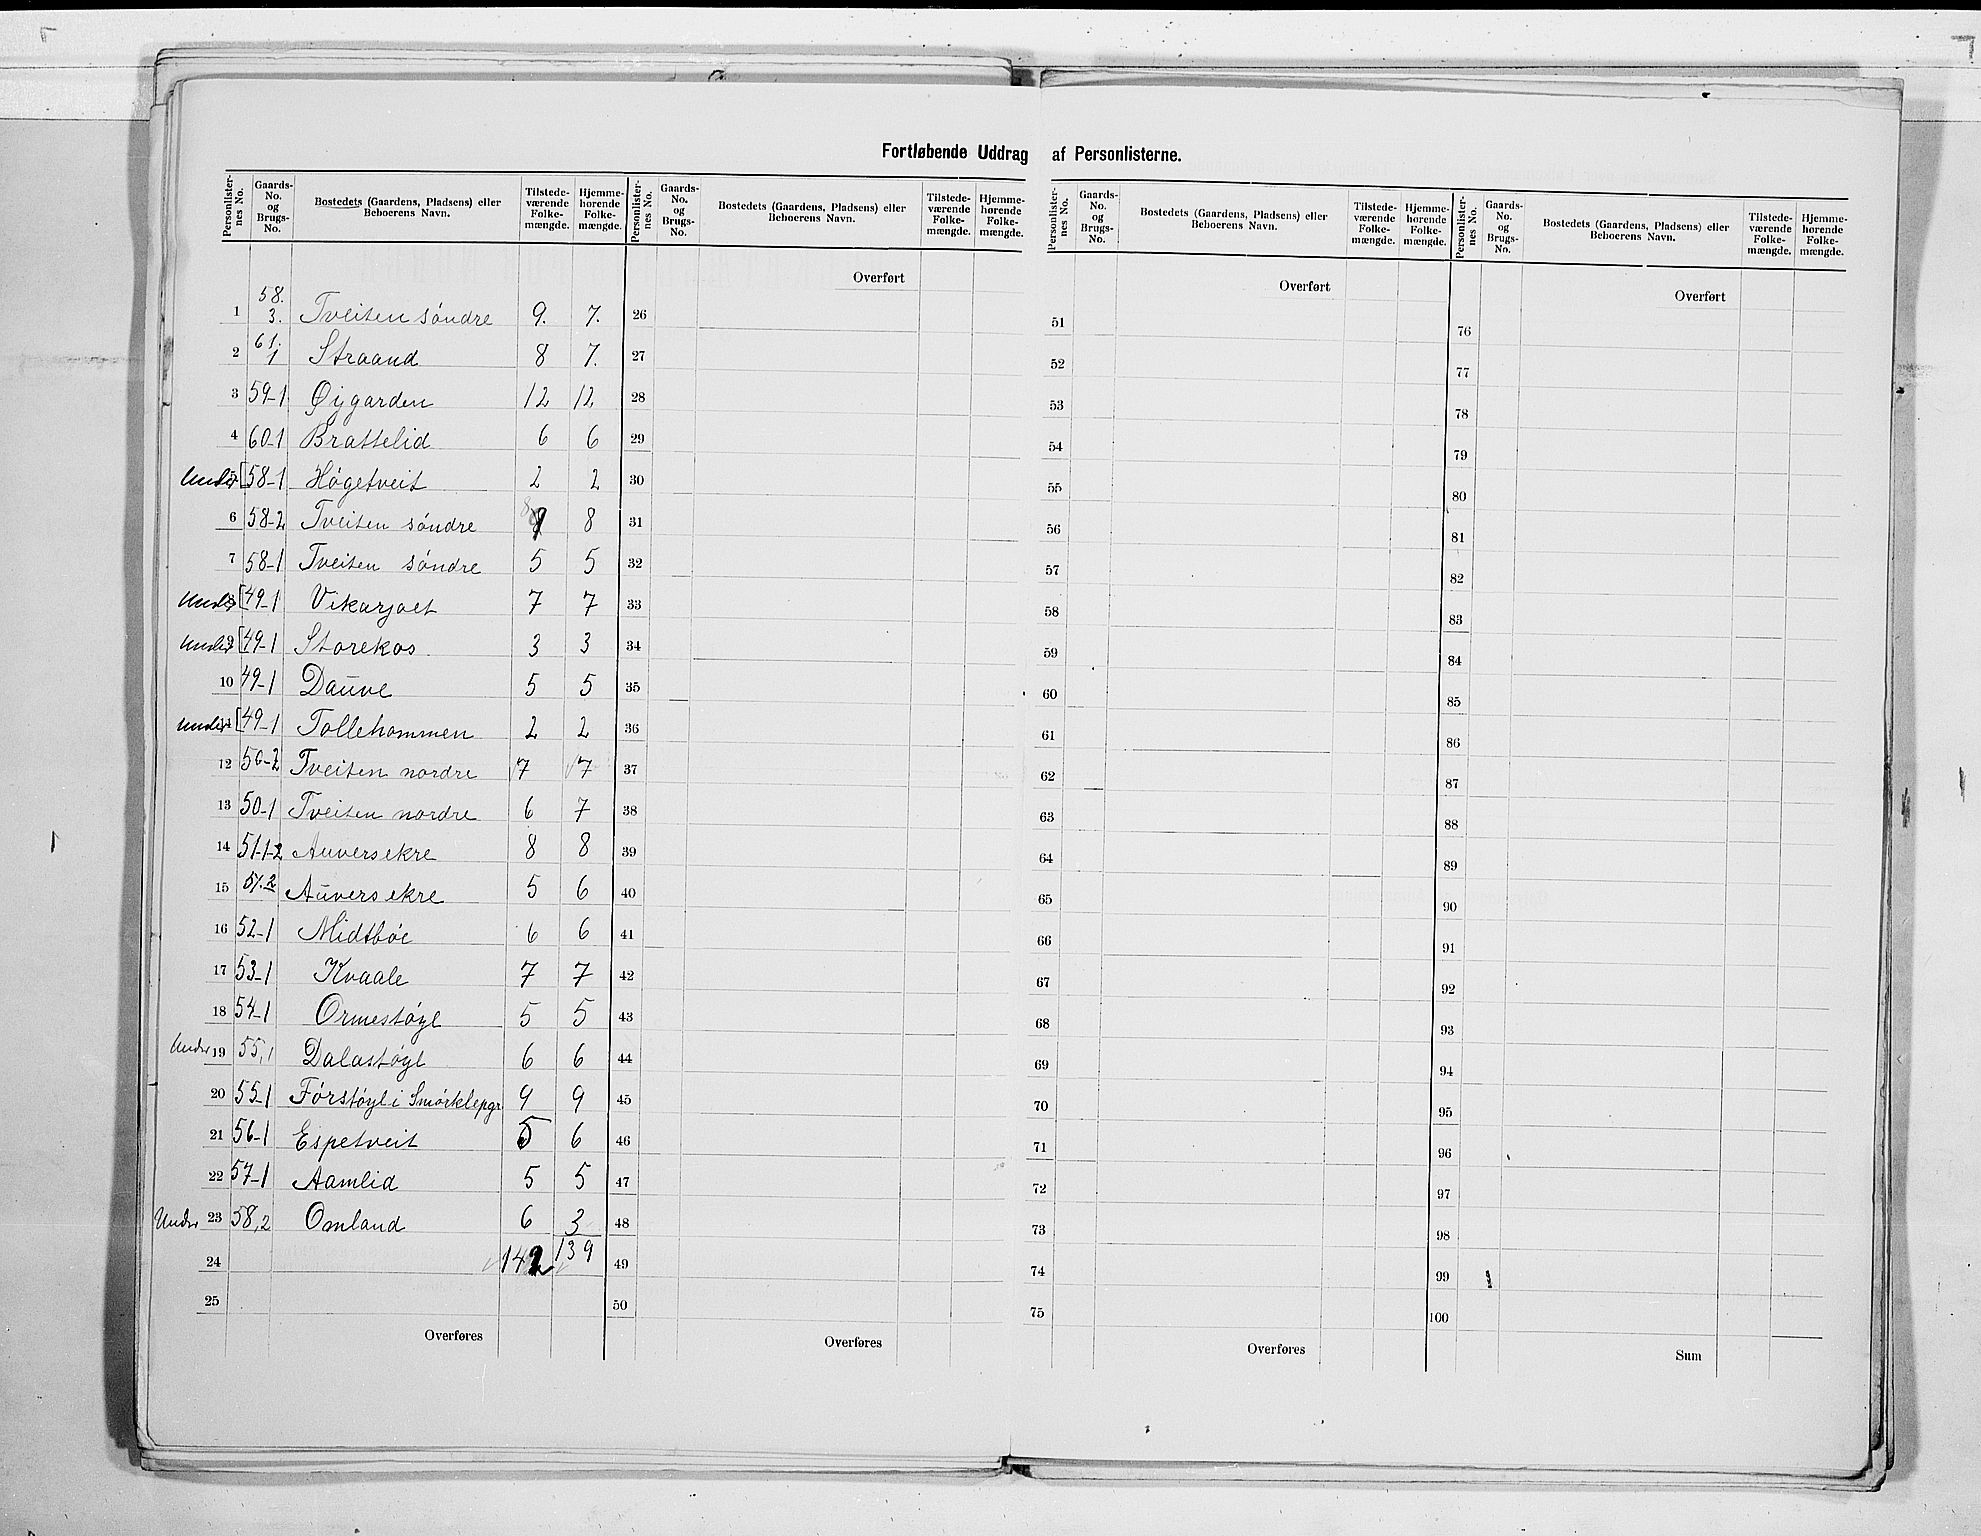 Fortløbende Uddrag af Personlisterne.
Personlister-nes No. | Gaards-No. og Brugs-No. | Bostedets (Gaardens, Pladsens) eller Beboerens Navn. | Tilstede-værende Folke-mængde. | Hjemme-hørende Folke-mængde. | Personlister-nes No. | Gaards-No. og Brugs-No. | Bostedets (Gaardens, Pladsens) eller Beboerens Navn. | Tilstede-værende Folke-mængde. | Hjemme-hørende Folke-mængde. | Personlister-nes No. | Gaards-No. og Brugs-No. | Bostedets (Gaardens, Pladsens) eller Beboerens Navn. | Tilstede-værende Folke-mængde. | Hjemme-hørende Folke-mængde. | Personlister-nes No. | Gaards-No. og Brugs-No. | Bostedets (Gaardens, Pladsens) eller Beboerens Navn. | Tilstede-værende Folke-mængde. | Hjemme-hørende Folke-mængde.
Overført Overført Overført
1 58. 3. Tveiten søndre 9. 7. 26 51 76
2 61. 1 Straand 8 7. 27 52 77
3 59-1 Øygarden 12 12 28 53 78
4 60-1 Brattelid 6 6 29 54 79
Under [58-1 Høgetveit 2 2 30 55 80
6 58-2 Tveiten søndre 8 8 31 56 81
7 58-1 Tveiten søndre 5 5 32 57 82
Under [49-1 Vikarjoet 7 7 33 58 83
Under [49-1 Storekos 3 3 34 59 84
10 49-1 Dauve 5 5 35 60 85
Under [49-1 Tollehommen 2 2 36 61 86
12 50-2 Tveiten nordre 7 7 37 62 87
13 50-1 Tveiten nordre 6 7 38 63 88
14 51-1-2 Auversekre 8 8 39 64 89
15 51.2 Auversekre 5 6 40 65 90
16 52-1 Midtbøe 6 6 41 66 91
17 53-1 Kvaale 7 7 42 67 92
18 54-1 Ormestøyl 5 5 43 68 93
Under 19 55,1 Dalastøyl 6 6 44 69 94
20 55-1 Førstøyl i Smørklepgr 9 9 45 70 95
21 56-1 Espetveit 5 6 46 71 96
22 57-1 Aamlid 5 5 47 72 97
Under 23 58,2 Omland 6 3 48 73 98
24 142 139 49 74 99
25 50 75 100
Overføres Overføres Overføres Sum